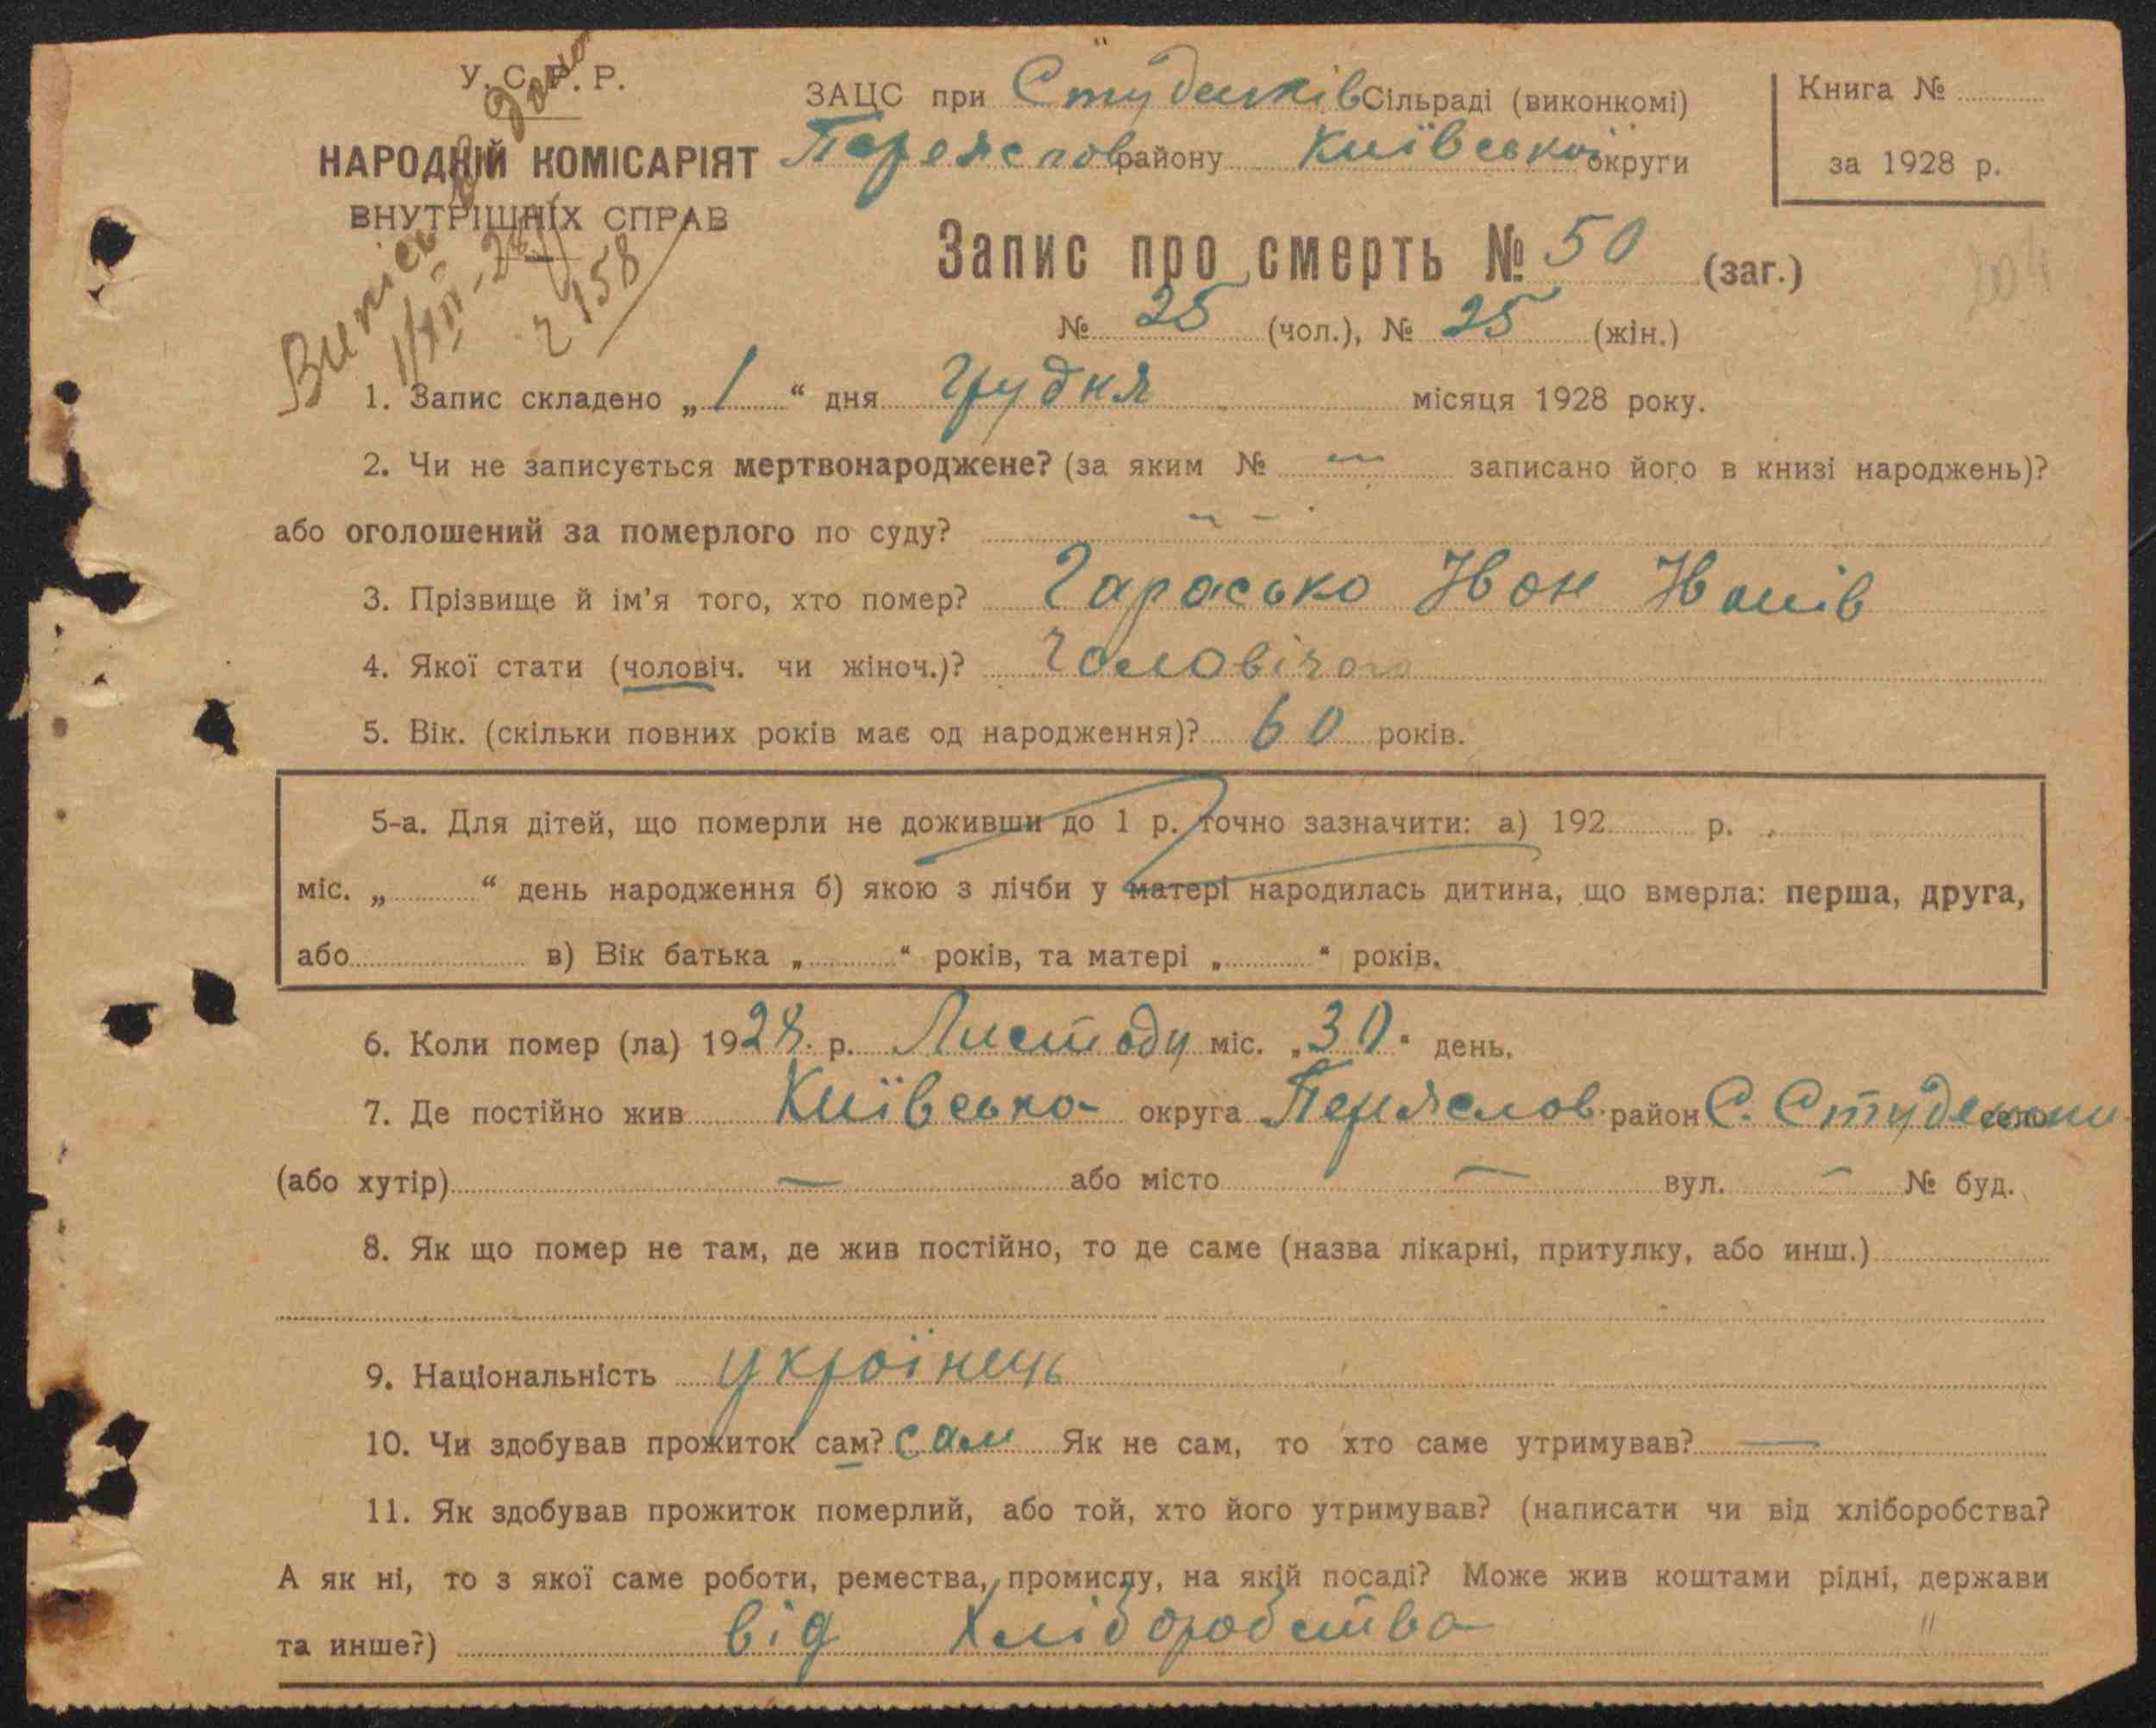 У. С. Р. Р.
НАРОДНІЙ КОМІСАРІЯТ
ВНУТРІШНІХ СПРАВ
Випис видано
1/XII-28 р
2158
ЗАЦС при Студенків Сільраді (виконкомі)
Переяслов району Київської округи
Книга №
за 1928 р.
Запис про смерть № 50 (заг.)
№ 25 (чол.), № 25 (жін.)
1. Запис складено „ 1 “ дня Грудня місяця 1928 року.
2. Чи не записується мертвонароджене? (за яким № — записано його в книзі народжень)?
або оголошений за померлого по суду? — —
3. Прізвище й ім'я того, хто помер? Гарасько Іван Іванів
4. Якої стати (чоловіч. чи жіноч.)? Чоловічого
5. Вік. (скільки повних років має од народження)? 60 років.
5-а. Для дітей, що померли не доживши до 1 р. точно зазначити: а) 192 р.
міс. „ “ день народження б) якою з лічби у матері народилась дитина, що вмерла: перша, друга,
або в) Вік батька „ “ років, та матері „ “ років.
6. Коли помер (ла) 1928. р. Листоду міс. „30“ день.
7. Де постійно жив Київська округа Переяслов район С. Студенки село
(або хутір) — або місто — вул. — № буд.
8. Як що помер не там, де жив постійно, то де саме (назва лікарні, притулку, або инш.)
9. Національність українець
10. Чи здобував прожиток сам? сам Як не сам, то хто саме утримував? —
11. Як здобував прожиток померлий, або той, хто його утримував? (написати чи від хліборобства?
А як ні, то з якої саме роботи, ремества, промислу, на якій посаді? Може жив коштами рідні, держави
та инше?) від хліборобства